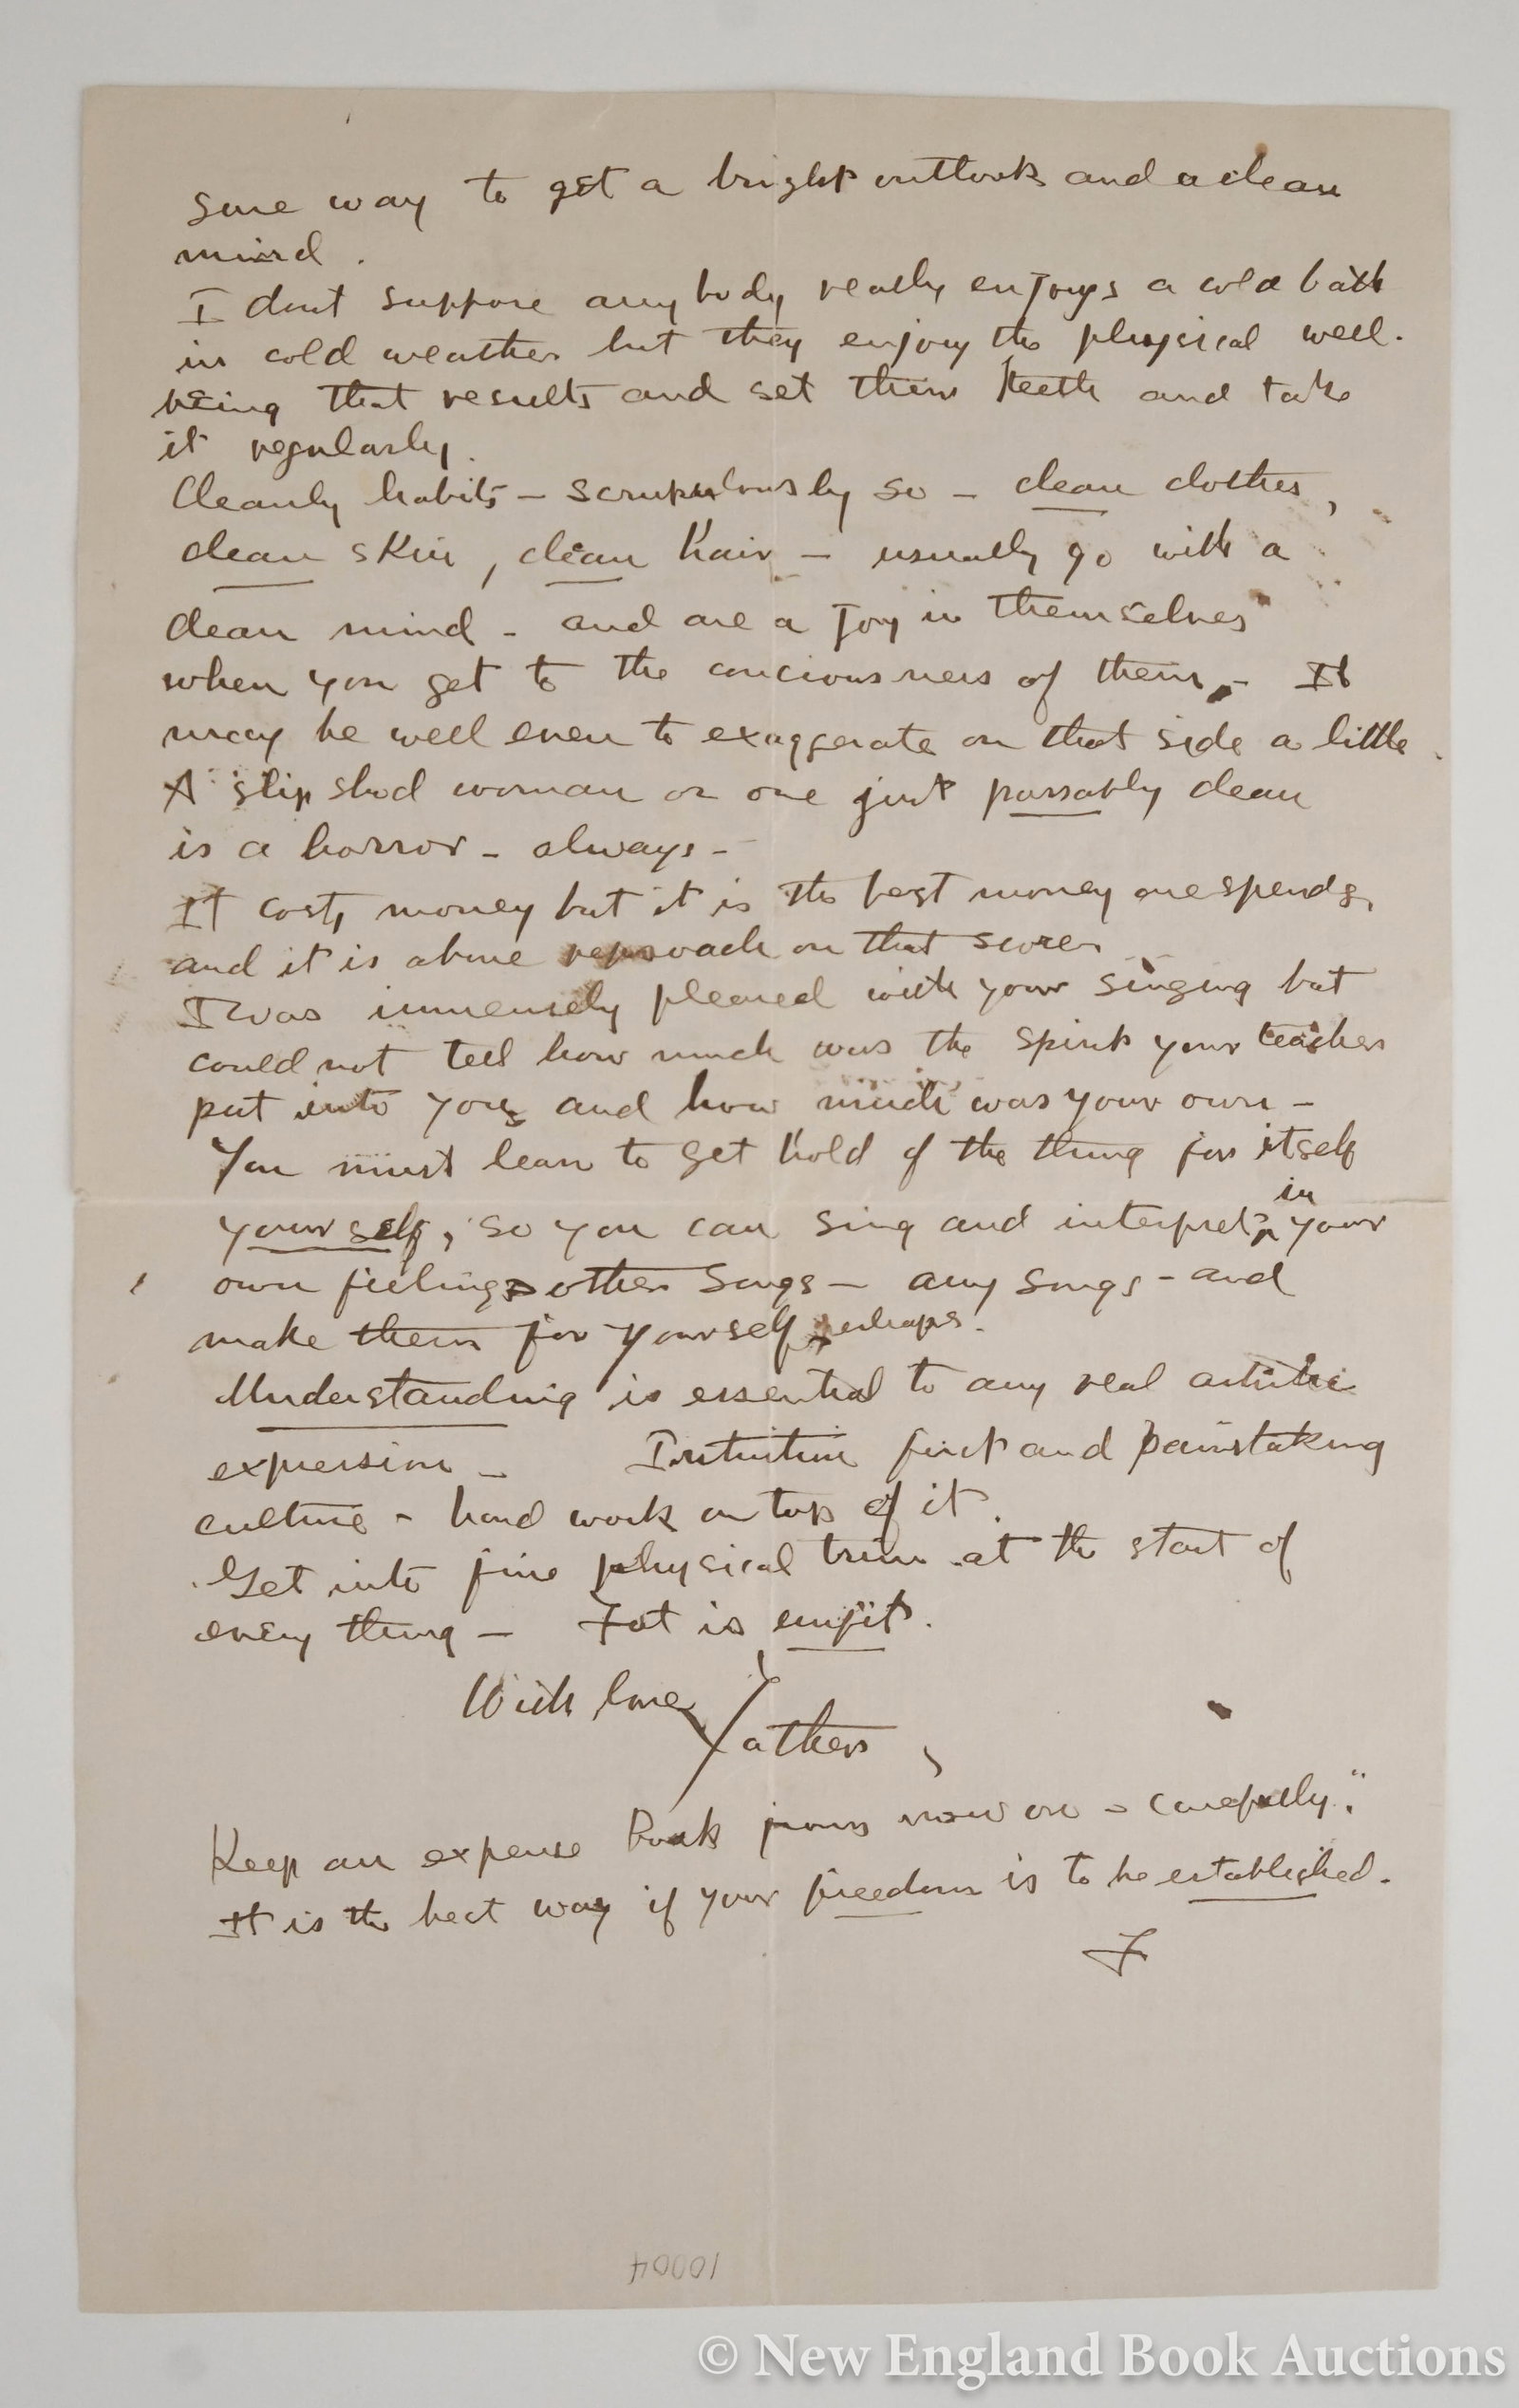 sure way to get a bright outlook and a clean
mind.
I dont suppose any body really enjoys a cold bath
in cold weather but they enjoy the physical well-
being that results and set their teeth and take
it regularly.
Cleanly habits - scrupulously so - clean clothes,
clean skin, clean hair - usually go with a
clean mind - and are a joy in themselves
when you get to the conciousness of them, - It
may be well even to exaggerate on that side a little.
A slip shod woman or one just passably clean
is a horror - always -
It costs money but it is the best money one spends,
and it is above reproach on that score.
I was immensely pleased with your singing but
could not tell how much was the spirit your teacher
put into you and how much was your own -
You must learn to get hold of the thing for itself
yourself, so you can sing and interpret in your
own feelings other songs - any songs - and
make them for yourself perhaps.
Understanding is essential to any real artistic
expression - Intuition first and painstaking
culture - hard work on top of it.
Get into fine physical trim at the start of
every thing - Fat is unfit.
With love
Father,
Keep an expense book from now on - carefully.
It is the best way if your freedom is to be established.
F
10004
© New England Book Auctions